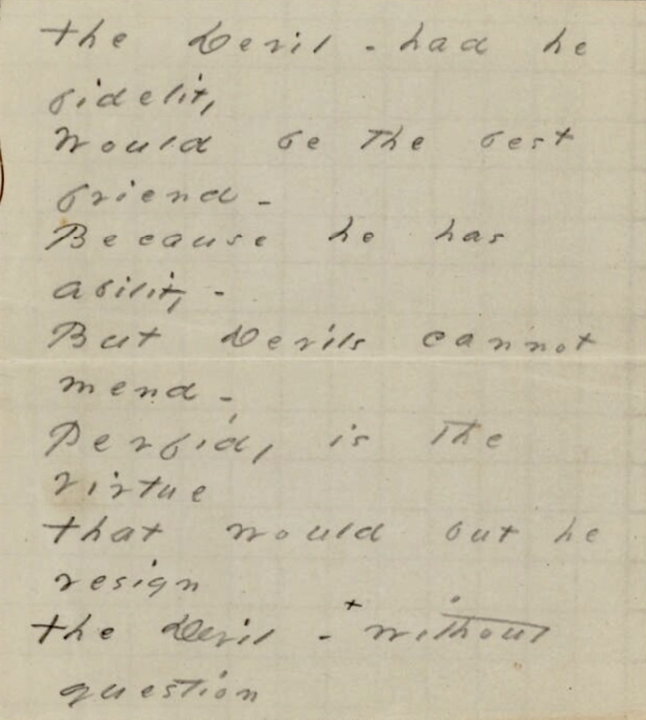 The Devil - had he
fidelity
Would be the best
friend -
Because he has
ability -
But Devils cannot
mend -
Perfidy is the
virtue
That would but he
resign
The Devil - + without
question